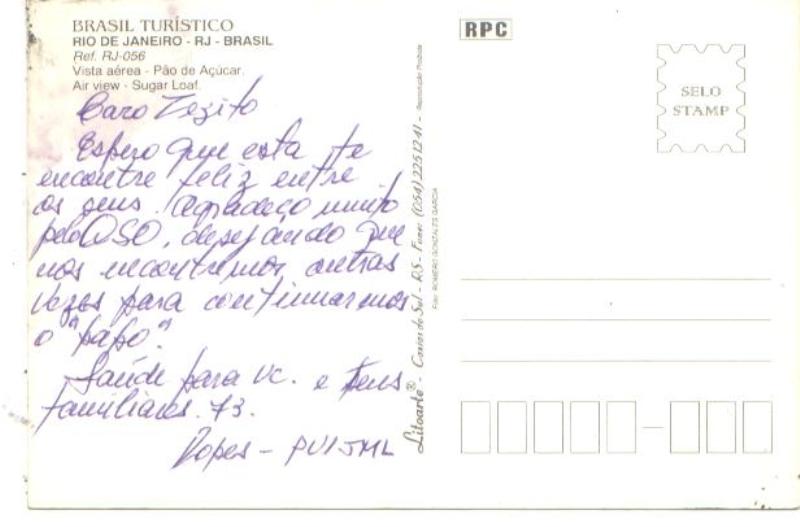 BRASIL TURÍSTICO
RIO DE JANEIRO - RJ - BRASIL
Ref. RJ-056
Vista aérea - Pão de Açúcar.
Air view - Sugar Loaf.
Caro Zezito
Espero que esta te
encontre feliz entre
os seus. Agradeço muito
pelo QSO, desejando que
nos encontremos outras
vezes para continuarmos
o "papo".
Saúde para vc. e seus
familiares. 73.
Lopes - PU1JML
Litoarte® - Caxias do Sul - RS - Fone: (054) 2251241 - Reprodução Proibida
Foto: ROMERO GONZALES GARCIA
RPC
SELO
STAMP